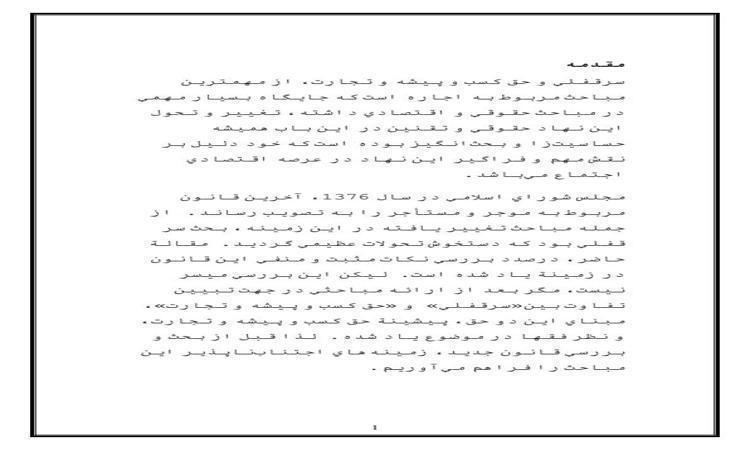 مقدمه
سرقفلي و حق كسب و پيشه و تجارت، از مهمترين
مباحث مربوط به اجاره است كه جايگاه بسيار مهمي
در مباحث حقوقي و اقتصادي داشته، تغيير و تحول
اين نهاد حقوقي و تقنين در اين باب هميشه
حساسيت‌زا و بحث‌انگيز بوده است كه خود دليل بر
نقش مهم و فراگير اين نهاد در عرصه اقتصادي
اجتماع مي‌باشد.
مجلس شوراي اسلامي در سال 1376، آخرين قانون
مربوط به موجر و مستأجر را به تصويب رساند. از
جمله مباحث تغيير يافته در اين زمينه، بحث سر
قفلي بود كه دستخوش تحولات عظيمي گرديد. مقالة
حاضر، درصدد بررسي نكات مثبت و منفي اين قانون
در زمينة ياد شده است. ليكن اين بررسي ميسر
نيست، مگر بعد از ارائه مباحثي در جهت تبيين
تفاوت بين«سرقفلي» و «حق كسب و پيشه و تجارت»،
مبناي اين دو حق، پيشينة حق كسب و پيشه و تجارت،
و نظر فقها در موضوع ياد شده. لذا قبل از بحث و
بررسي قانون جديد، زمينه‌هاي اجتناب‌ناپذير اين
مباحث را فراهم مي‌آوريم.
1